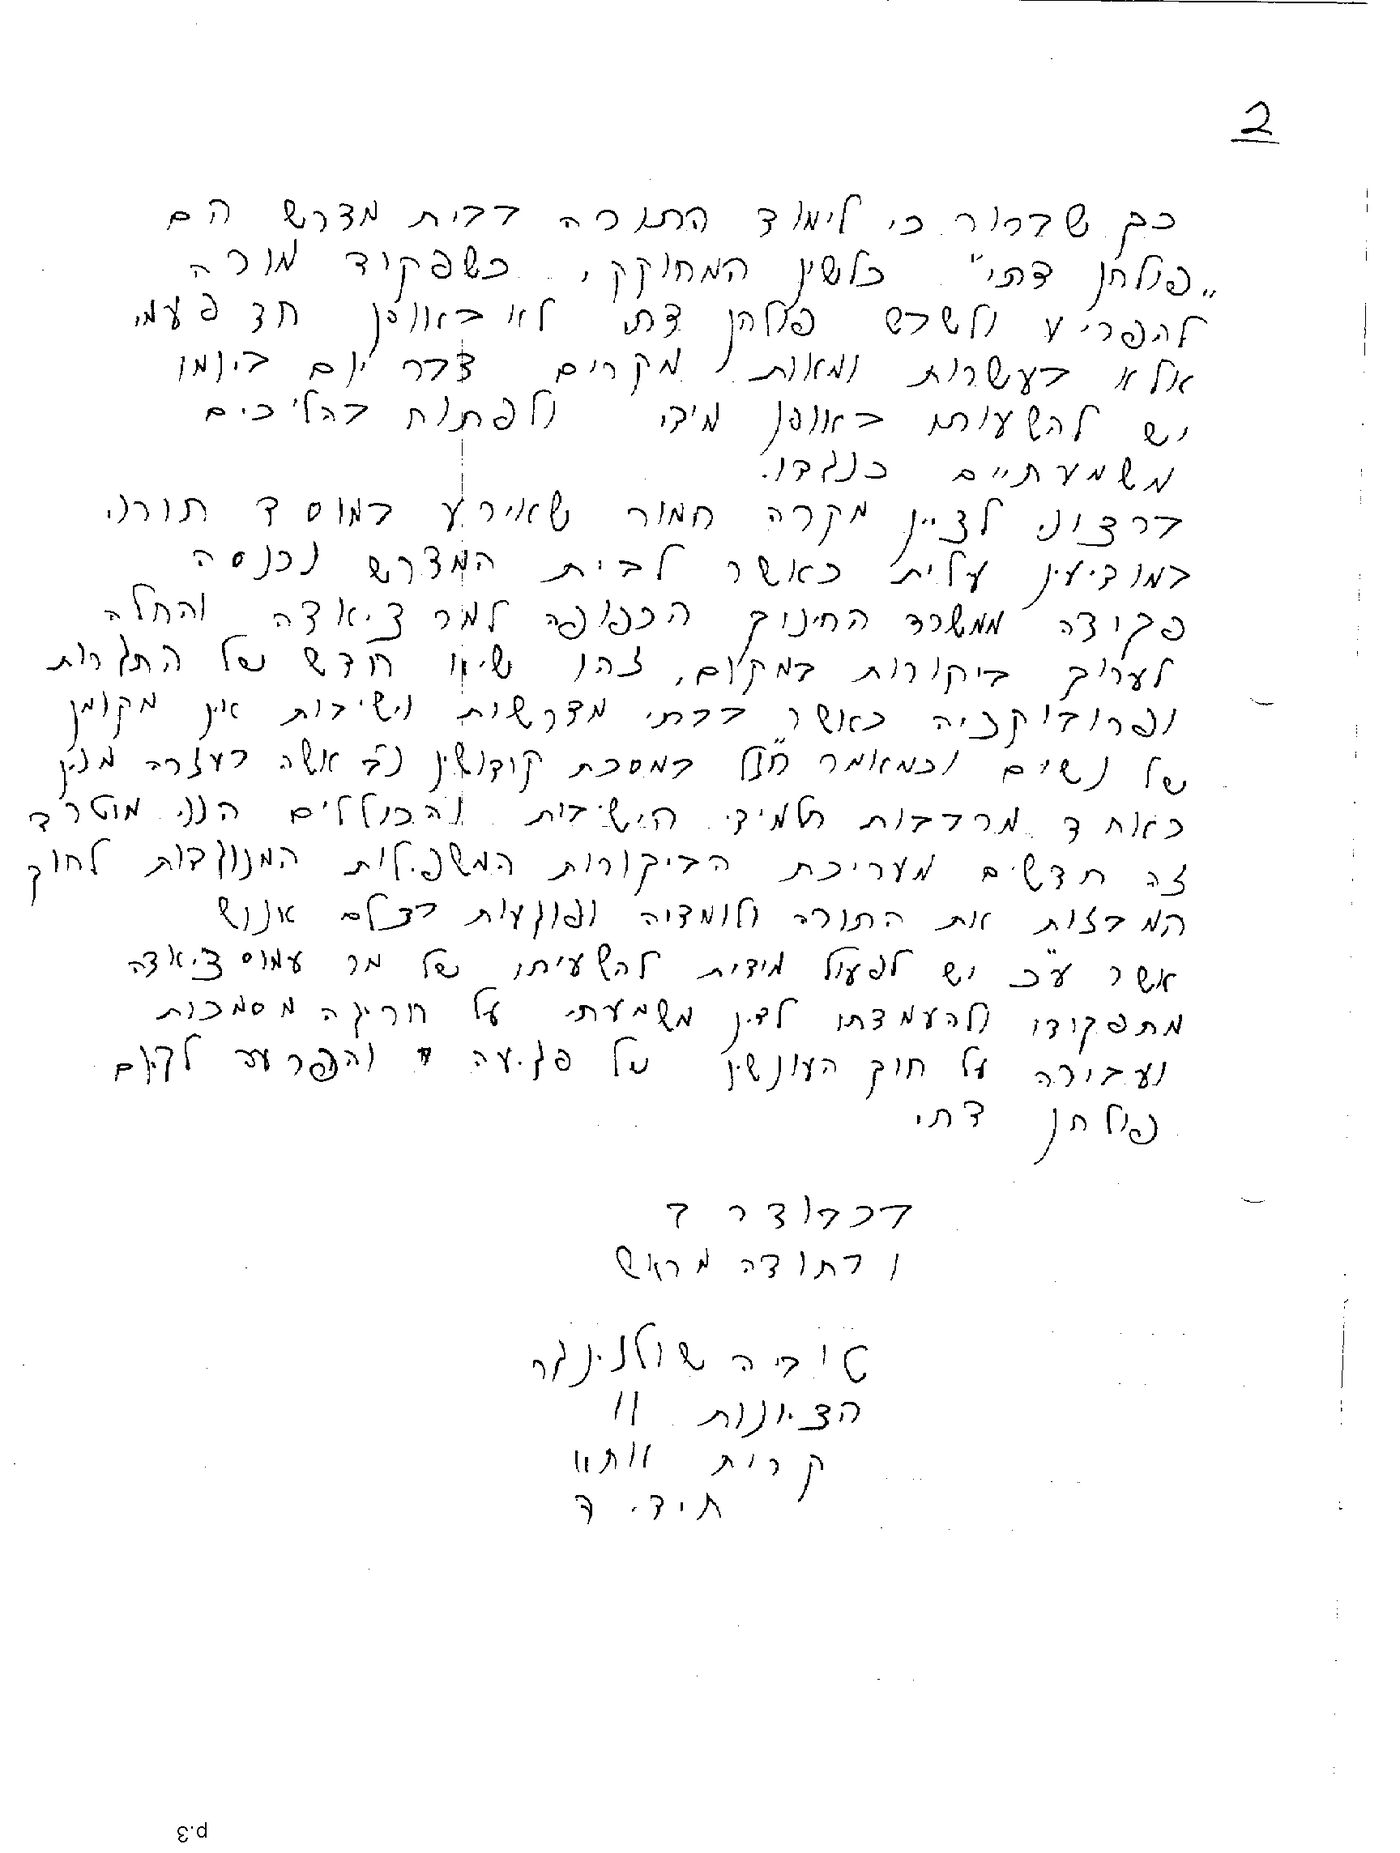 2
כך שברור כי לימוד התורה בבית מדרש הם
"פולחן דתי" כלשון המחוקק, כשפקוד מורה
להפריע ולשבש פולחן דתי לא באופן חד פעמי
אלא בעשרות ומאות מקרים דבר יום ביומו
יש להשעותו באופן מידי ולפתוח בהליכים
משמעתיים כנגדו.
ברצוני לציין מקרה חמור שאירע במוסד תורני
במודיעין עלית כאשר לבית המדרש נכנסה
פקודה ממשרד החינוך הכפופה למר ציאדה והחלה
לערוך ביקורות במקום, זהו שיא חדש של התגרות
ופרובוקציה כאשר בבתי מדרשות וישיבות אין מקומן
של נשים וכמאמר חז"ל במסכת קידושין נב אשה בעזרה מנין
כאוחד מרבבות תלמידי הישיבות והכוללים הנני מוטרד
זה חדשים מעריכת הביקורות המשפילות המנוגדות לחוק
המבזות את התורה ולומדיה ופוגעות בצלם אנוש
אשר ע"כ יש לפעול מידית להשעיתו של מר עמוס ציאדה
מתפקודו ולהעמדתו לדין משמעתי על חריגה מסמכות
ועבירה על חוק העונשין של פגיעה והפרעה לקיום
פולחן דתי
בכבוד רב
ובתודה מראש
טוביה שולזינגר
הציונות 11
קרית אתא
חיד. ה
p.3